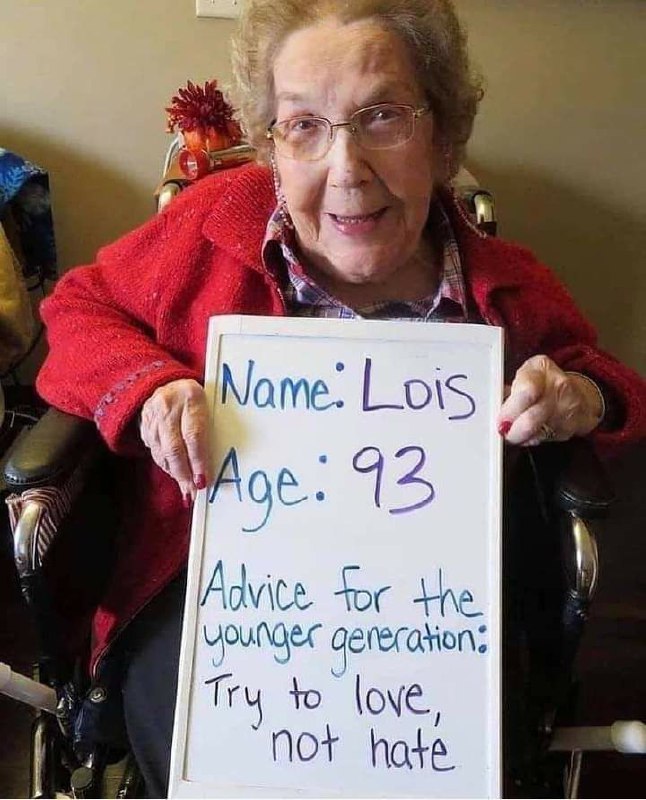 Name: Lois
Age: 93
Advice for the
younger generation:
Try to love,
not hate